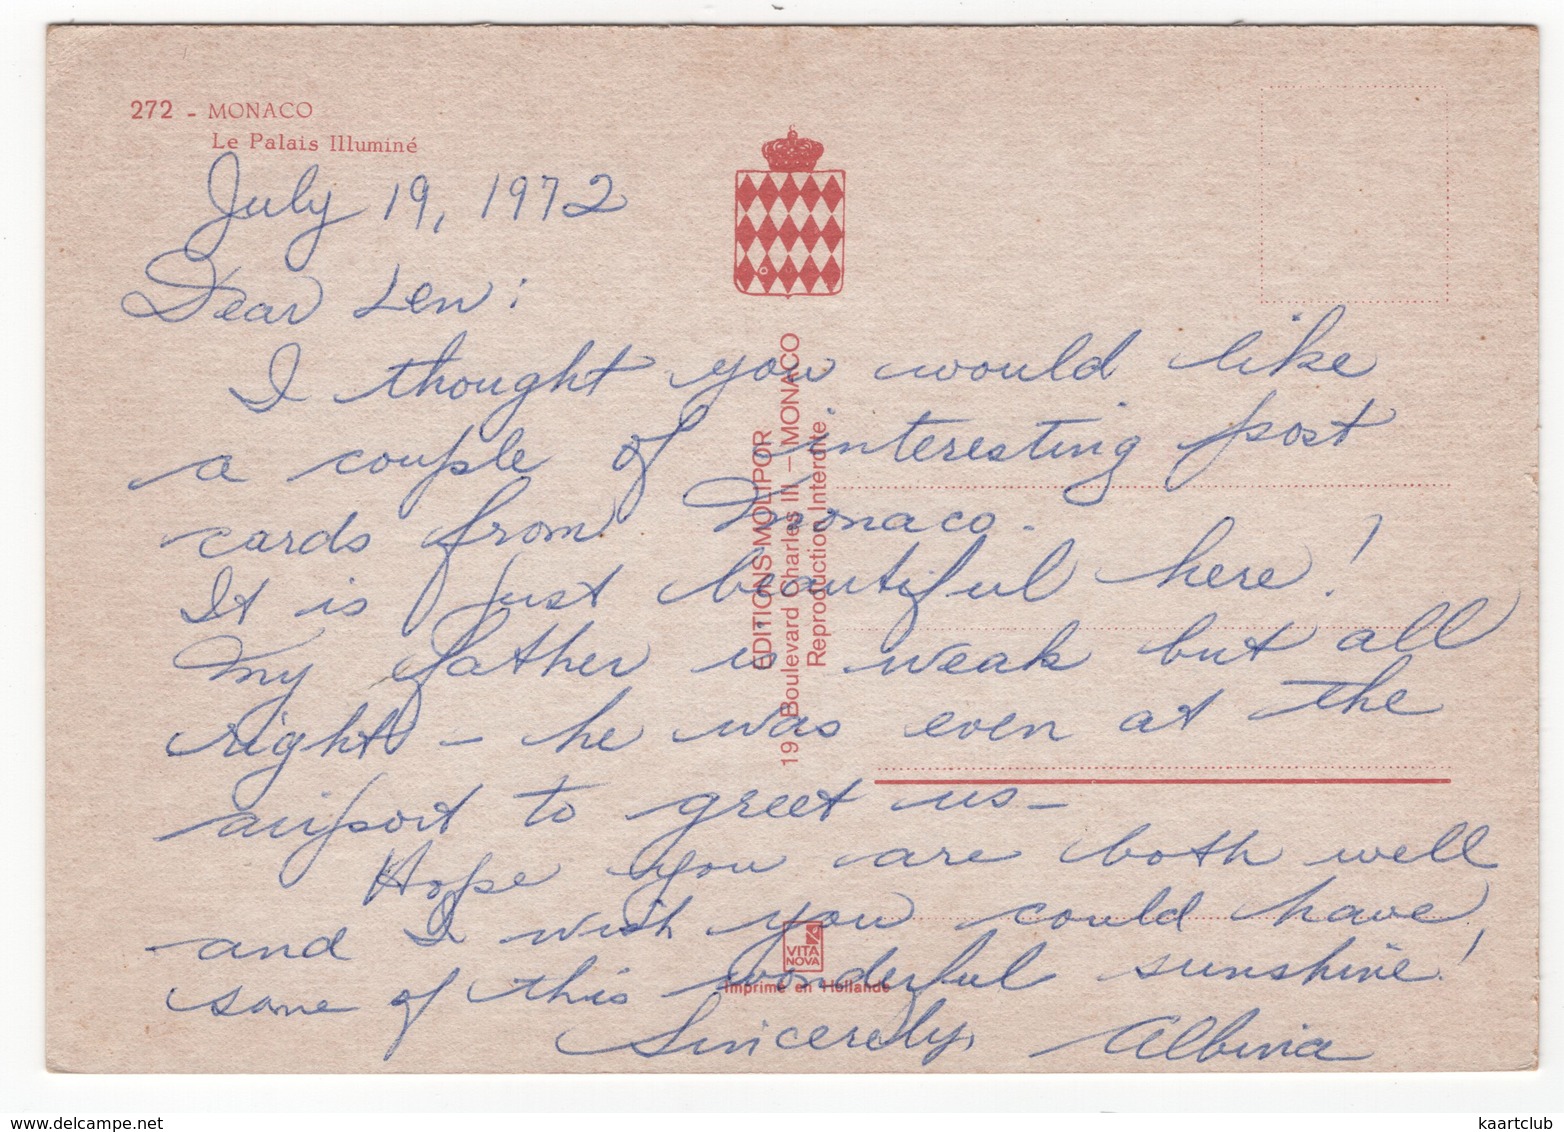 272 - MONACO
Le Palais Illuminé
July 19, 1972
Dear Len:
I thought you would like
a couple of interesting post
cards from Monaco.
It is just beautiful here!
My father is weak but all
right - he was even at the
airport to greet us -
Hope you are both well
and I wish you could have
some of this wonderful sunshine!
Sincerely, Albina
EDITIONS MOLIPOR
19, Boulevard Charles III - MONACO
Reproduction Interdite
VITA
NOVA
Imprimé en Hollande
kaartclub